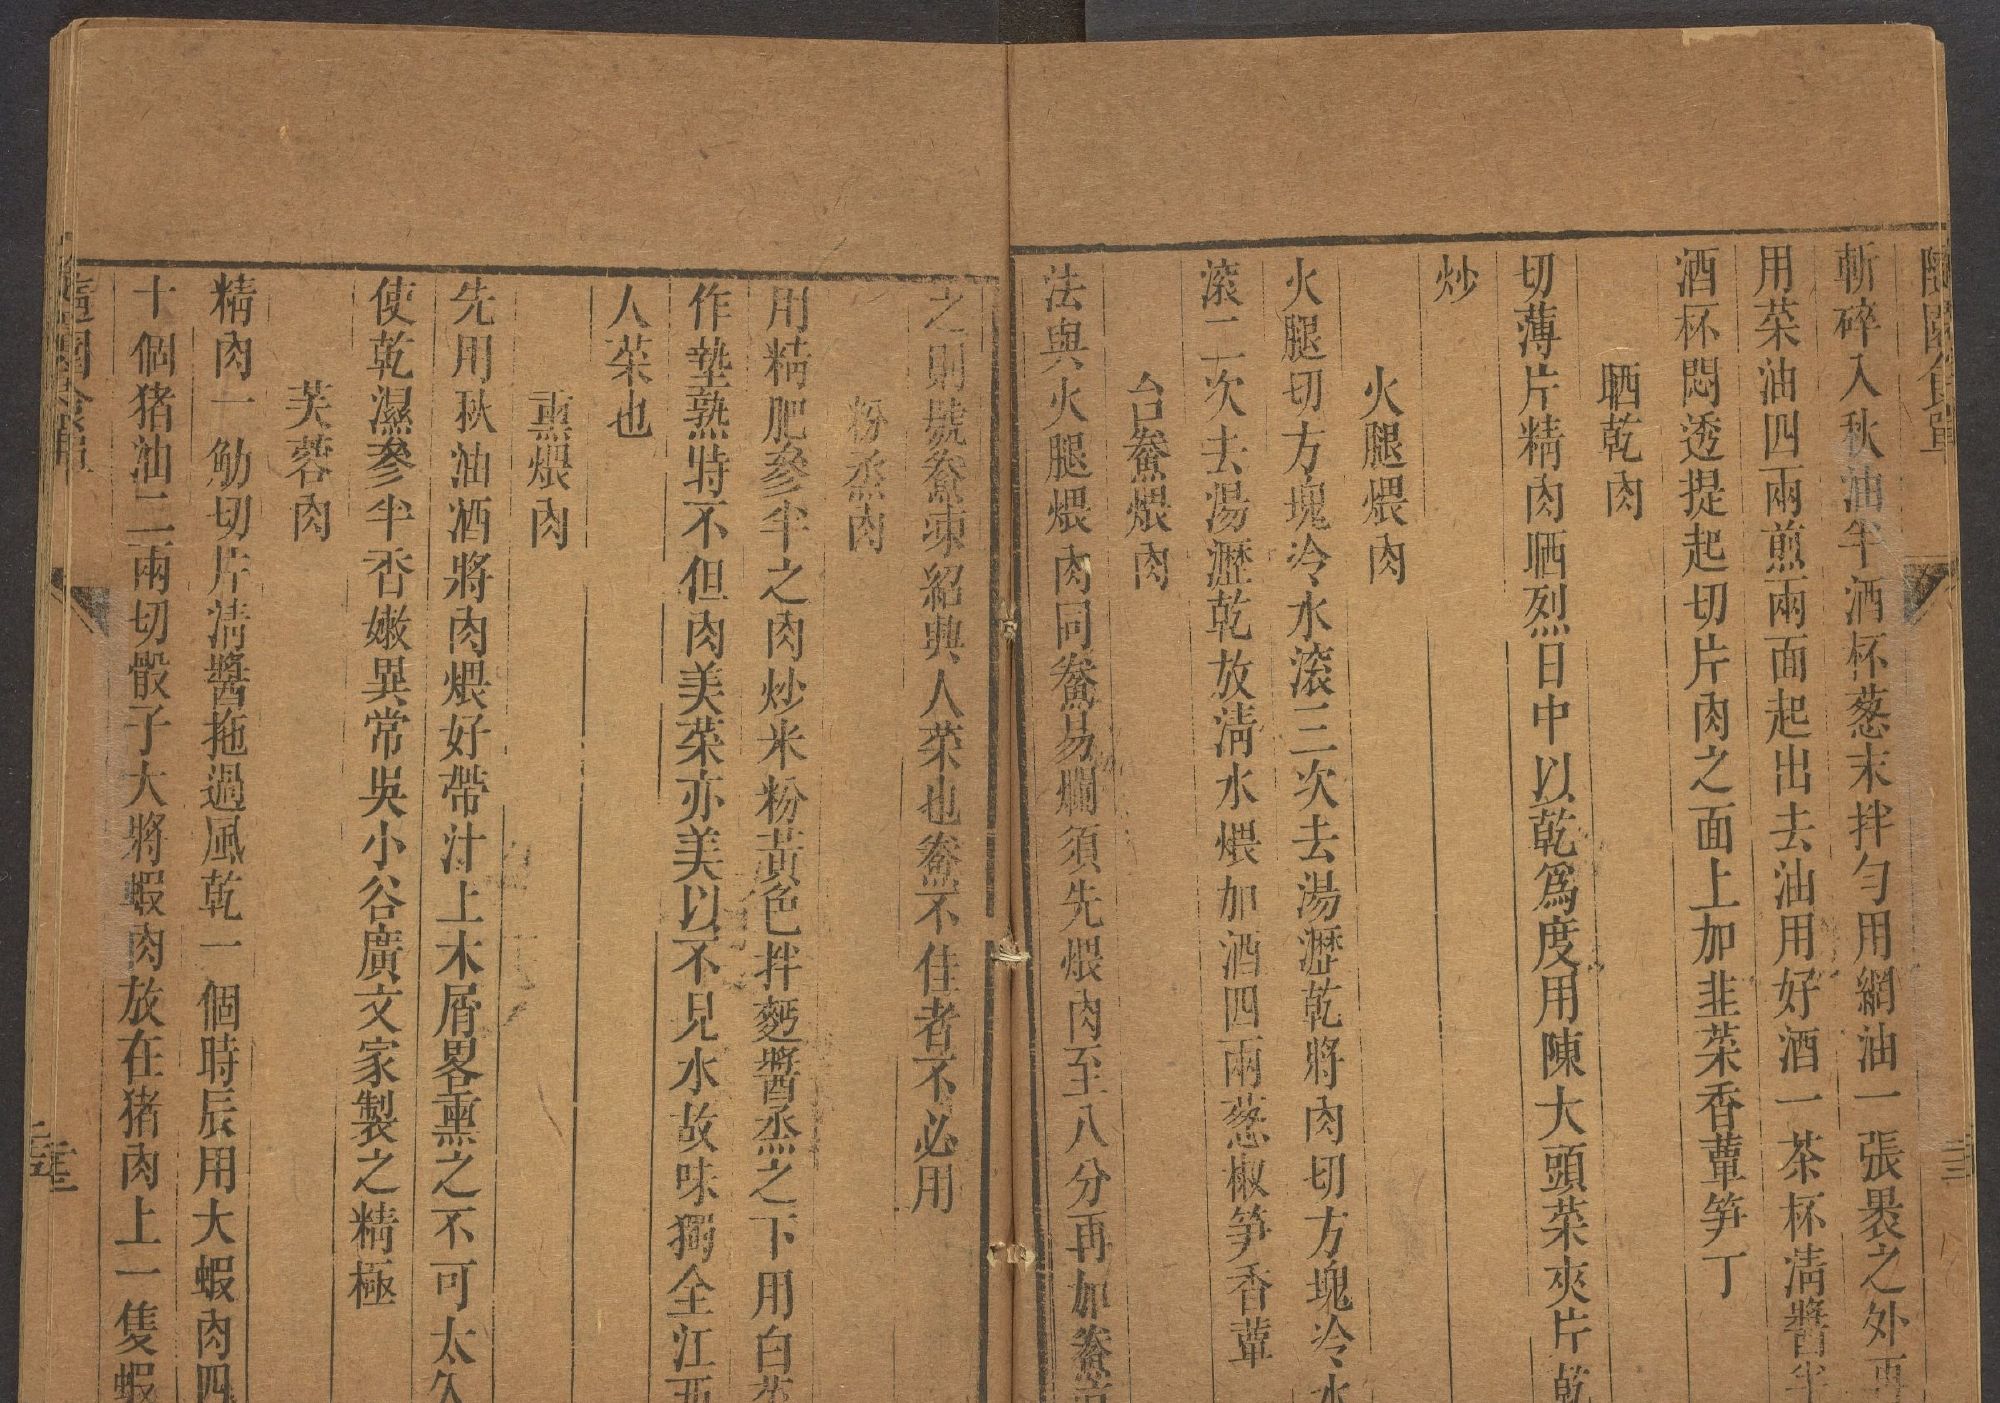 斬碎入秋油半酒杯葱末拌勻用網油一張裹之外再
用菜油四兩煎兩面起出去油用好酒一茶杯淸醬半
酒杯悶透提起切片肉之面上加韭菜香蕈笋丁
晒乾肉
切薄片精肉晒烈日中以乾爲度用陳大頭菜夾片乾
炒
火腿煨肉
火腿切方塊冷水滚三次去湯瀝乾將肉切方塊冷水
滚二次去湯瀝乾放淸水煨加酒四兩葱椒笋香蕈
台鯗煨肉
法與火腿煨肉同鯗易爛須先煨肉至八分再加鯗
之則號鯗凍紹興人菜也鯗不佳者不必用
粉烝肉
用精肥參半之肉炒米粉黃色拌麪醬烝之下用白菜
作墊熟時不但肉美菜亦美以不見水故味獨全江西
人菜也
熏煨肉
先用秋油酒將肉煨好帶汁上木屑畧熏之不可太久
使乾濕參半香嫩異常吳小谷廣文家製之精極
芙蓉肉
精肉一觔切片淸醬拖過風乾一個時辰用大蝦肉四
十個猪油二兩切骰子大將蝦肉放在猪肉上一隻蝦